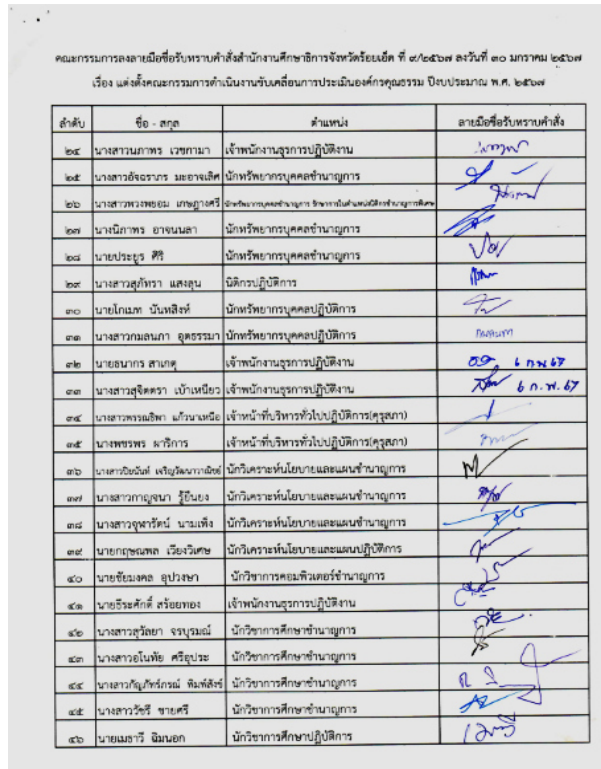 คณะกรรมการลงลายมือชื่อรับทราบคำสั่งสำนักงานศึกษาธิการจังหวัดร้อยเอ็ด ที่ ๙/๒๕๖๗ ลงวันที่ ๓๐ มกราคม ๒๕๖๗
เรื่อง แต่งตั้งคณะกรรมการดำเนินงานขับเคลื่อนการประเมินองค์กรคุณธรรม ปีงบประมาณ พ.ศ. ๒๕๖๗
ลำดับ ชื่อ - สกุล ตำแหน่ง ลายมือชื่อรับทราบคำสั่ง
๒๔ นางสาวนภาพร เวชกามา เจ้าพนักงานธุรการปฏิบัติงาน
๒๕ นางสาวอัจฉราภร มะอาจเลิศ นักทรัพยากรบุคคลชำนาญการ
๒๖ นางสาวพวงพยอม เกษฎางศรี นักทรัพยากรบุคคลชำนาญการ รักษาการในตำแหน่งนิติกรชำนาญการพิเศษ
๒๗ นางนิภาพร อาจนนลา นักทรัพยากรบุคคลชำนาญการ
๒๘ นายประยูร ศิริ นักทรัพยากรบุคคลชำนาญการ
๒๙ นางสาวสุภัทรา แสงลุน นิติกรปฏิบัติการ
๓๐ นายโกเมท นันทสิงห์ นักทรัพยากรบุคคลปฏิบัติการ
๓๑ นางสาวกมลนภา อุตธรรมา นักทรัพยากรบุคคลปฏิบัติการ
๓๒ นายธนากร สาเกตุ เจ้าพนักงานธุรการปฏิบัติงาน ๖ ก.พ. ๖๗
๓๓ นางสาวสุจิตตรา เบ้าเหนียว เจ้าพนักงานธุรการปฏิบัติงาน ๖ ก.พ. ๖๗
๓๔ นางสาวพรรณธิพา แก้วนาเหนือ เจ้าหน้าที่บริหารทั่วไปปฏิบัติการ(คุรุสภา)
๓๕ นางพชรพร ผาริการ เจ้าหน้าที่บริหารทั่วไปปฏิบัติการ(คุรุสภา)
๓๖ นางสาวปิยนันท์ เจริญวัฒนาวาณิชย์ นักวิเคราะห์นโยบายและแผนชำนาญการ
๓๗ นางสาวกาญจนา รู้ยืนยง นักวิเคราะห์นโยบายและแผนชำนาญการ
๓๘ นางสาวจุฬารัตน์ นามเพ็ง นักวิเคราะห์นโยบายและแผนชำนาญการ
๓๙ นายกฤษณพล เวียงวิเศษ นักวิเคราะห์นโยบายและแผนปฏิบัติการ
๔๐ นายชัยมงคล อุปวงษา นักวิชาการคอมพิวเตอร์ชำนาญการ
๔๑ นายธีระศักดิ์ สร้อยทอง เจ้าพนักงานธุรการปฏิบัติงาน
๔๒ นางสาวสุวัลยา จรบุรมณ์ นักวิชาการศึกษาชำนาญการ
๔๓ นางสาวอโนทัย ศรีอุประ นักวิชาการศึกษาชำนาญการ
๔๔ นางสาวกัญภัทร์ภรณ์ พิมพ์สังข์ นักวิชาการศึกษาชำนาญการ
๔๕ นางสาววัชรี ชายศรี นักวิชาการศึกษาชำนาญการ
๔๖ นายเมธาวี ฉิมนอก นักวิชาการศึกษาปฏิบัติการ